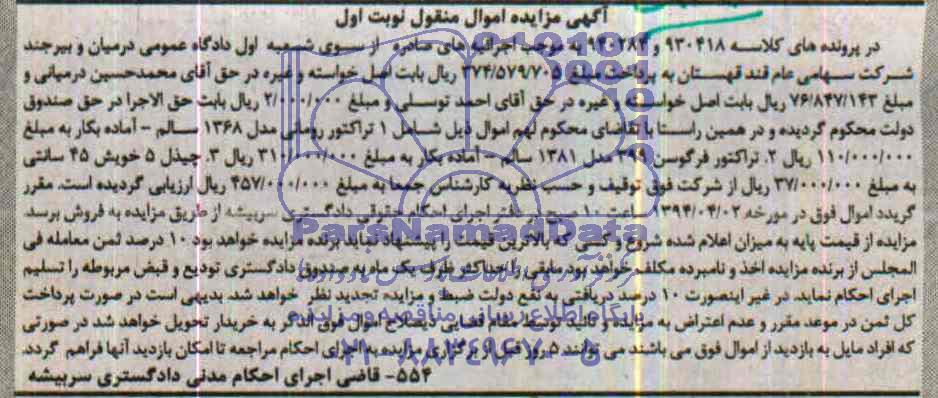 آگهی مزایده اموال منقول نوبت اول
در پرونده های کلاسه ۹۳۰۴۱۸ و ۹۴۰۲۸۴ به موجب اجرائیه های صادره از سوی شعبه اول دادگاه عمومی درمیان و بیرجند
شرکت سهامی عام قند قهستان به پرداخت مبلغ ۳۷۴/۵۷۹/۷۰۵ ریال بابت اصل خواسته و غیره در حق آقای محمدحسین درمیانی و
مبلغ ۷۶/۸۴۷/۱۴۳ ریال بابت اصل خواسته و غیره در حق آقای احمد توسلی و مبلغ ۲/۰۰۰/۰۰۰ ریال بابت حق الاجرا در حق صندوق
دولت محکوم گردیده و در همین راستا با تقاضای محکوم لهم اموال ذیل شامل ۱ تراکتور رومانی مدل ۱۳۶۸ سالم - آماده بکار به مبلغ
۱۱۰/۰۰۰/۰۰۰ ریال ۲. تراکتور فرگوسن ۳۹۹ مدل ۱۳۸۱ سالم - آماده بکار به مبلغ ۳۱۰/۰۰۰/۰۰۰ ریال ۳. چیذل ۵ خویش ۴۵ سانتی
به مبلغ ۳۷/۰۰۰/۰۰۰ ریال از شرکت فوق توقیف و حسب نظریه کارشناس جمعا به مبلغ ۴۵۷/۰۰۰/۰۰۰ ریال ارزیابی گردیده است. مقرر
گردید اموال فوق در مورخه ۱۳۹۴/۰۴/۰۲ ساعت ۱۰ صبح در دفتر اجرای احکام حقوقی دادگستری سربیشه از طریق مزایده به فروش برسد.
مزایده از قیمت پایه به میزان اعلام شده شروع و کسی که بالاترین قیمت را پیشنهاد نماید برنده مزایده خواهد بود ۱۰ درصد ثمن معامله فی
المجلس از برنده مزایده اخذ و نامبرده مکلف خواهد بود مابقی را حداکثر ظرف یک ماه به صندوق دادگستری تودیع و قبض مربوطه را تسلیم
اجرای احکام نماید. در غیر اینصورت ۱۰ درصد دریافتی به نفع دولت ضبط و مزایده تجدید نظر خواهد شد. بدیهی است در صورت پرداخت
کل ثمن در موعد مقرر و عدم اعتراض به مزایده و تائید توسط مقام قضایی ذیصلاح اموال فوق الذکر به خریدار تحویل خواهد شد در صورتی
که افراد مایل به بازدید از اموال فوق می باشند می توانند ۵ روز قبل از برگزاری مزایده به اجرای احکام مراجعه تا امکان بازدید آنها فراهم گردد.
۵۵۴- قاضی اجرای احکام مدنی دادگستری سربیشه
ParsNamadData
پایگاه اطلاع رسانی مناقصه و مزایده
۰۲۱-۸۸۳۴۹۶۷۰-۵